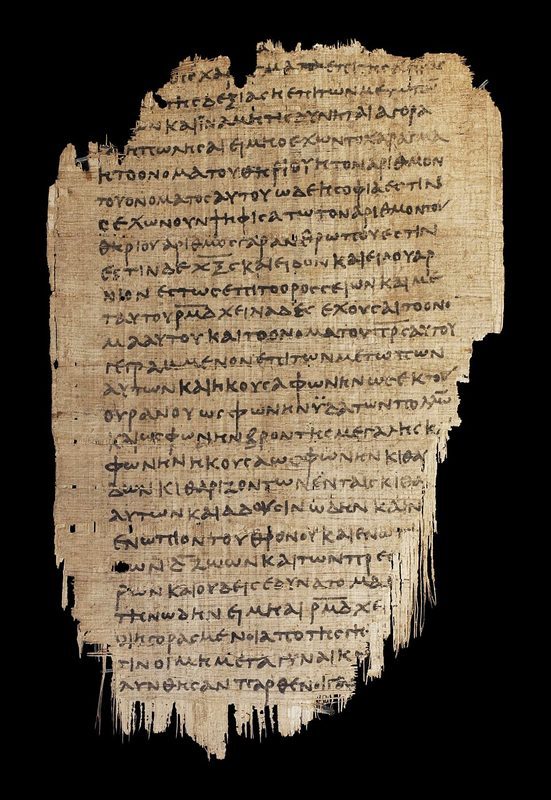 ΧΑΡΑΓΜΑΤΑ ΕΠΙ ΤΗΣ ΧΕΙΡΟΣ
ΤΗΣ ΔΕΞΙΑΣ Η ΕΠΙ ΤΩΝ ΜΕΤΩΠΩ̅
ΩΝ ΚΑΙ ΪΝΑ ΜΗ ΤΙΣ ΔΥΝΗΤΑΙ ΑΓΟΡΑ
ΣΑΙ Η ΠΩΛΗΣΑΙ ΕΙ ΜΗ Ο ΕΧΩΝ ΤΟ ΧΑΡΑΓΜΑ
Η ΤΟ ΟΝΟΜΑ ΤΟΥ ΘΗΡΙΟΥ Η ΤΟΝ ΑΡΙΘΜΟΝ
ΤΟΥ ΟΝΟΜΑΤΟΣ ΑΥΤΟΥ ΩΔΕ Η ΣΟΦΙΑ ΕΣΤΙΝ
Ο ΕΧΩΝ ΟΥΝ ΨΗΦΙΣΑΤΩ ΤΟΝ ΑΡΙΘΜΟΝ ΤΟΥ
ΘΗΡΙΟΥ ΑΡΙΘΜΟΣ ΓΑΡ ΑΝΘΡΩΠΟΥ ΕΣΤΙΝ
ΕΣΤΙΝ ΔΕ Χ̅Ξ̅Ϛ̅ ΚΑΙ ΕΙΔΟΝ ΚΑΙ ΕΙΔΟΥ ΑΡ
ΝΙΟΝ ΕΣΤΩΣ ΕΠΙ ΤΟ ΟΡΟΣ ΣΕΙΩΝ ΚΑΙ ΜΕ
Τ ΑΥΤΟΥ Ρ̅Μ̅Δ̅ ΧΕΙΛΙΑΔΕΣ ΕΧΟΥΣΑΙ ΤΟ ΟΝΟ
ΜΑ ΑΥΤΟΥ ΚΑΙ ΤΟ ΟΝΟΜΑ ΤΟΥ Π̅Ρ̅Σ̅ ΑΥΤΟΥ
ΓΕΓΡΑΜΜΕΝΟΝ ΕΠΙ ΤΩΝ ΜΕΤΩΠΩΝ
ΑΥΤΩΝ ΚΑΙ ΗΚΟΥΣΑ ΦΩΝΗΝ ΩΣ ΕΚ ΤΟΥ
ΟΥΡΑΝΟΥ ΩΣ ΦΩΝΗΝ ΫΔΑΤΩΝ ΠΟΛΛΩ̅
ΚΑΙ ΩΣ ΦΩΝΗΝ ΒΡΟΝΤΗΣ ΜΕΓΑΛΗΣ Κ
ΦΩΝΗΝ ΗΚΟΥΣΑ ΩΣ ΦΩΝΗΝ ΚΙΘΑ
ΔΩΝ ΚΙΘΑΡΙΖΟΝΤΩΝ ΕΝ ΤΑΙΣ ΚΙΘΑ
ΑΥΤΩΝ ΚΑΙ ΑΔΟΥΣΙΝ ΩΔΗΝ ΚΑΙΝ
ΕΝΩΠΙΟΝ ΤΟΥ ΘΡΟΝΟΥ ΚΑΙ ΕΝΩ
ΤΩΝ Δ̅ ΖΩΩΝ ΚΑΙ ΤΩΝ ΠΡΕΣ
ΡΩΝ ΚΑΙ ΟΥΔΕΙΣ ΕΔΥΝΑΤΟ ΜΑΘ
ΤΗΝ ΩΔΗΝ ΕΙ ΜΗ ΑΙ Ρ̅Μ̅Δ̅ ΧΕ
ΟΙ ΗΓΟΡΑΣΜΕΝΟΙ ΑΠΟ ΤΗΣ ΓΗ
ΤΙΝ ΟΙ ΜΗ ΜΕΤΑ ΓΥΝΑΙΚ
ΛΥΝΘΗΣΑΝ ΠΑΡΘΕΝΟΙ ΓΑ